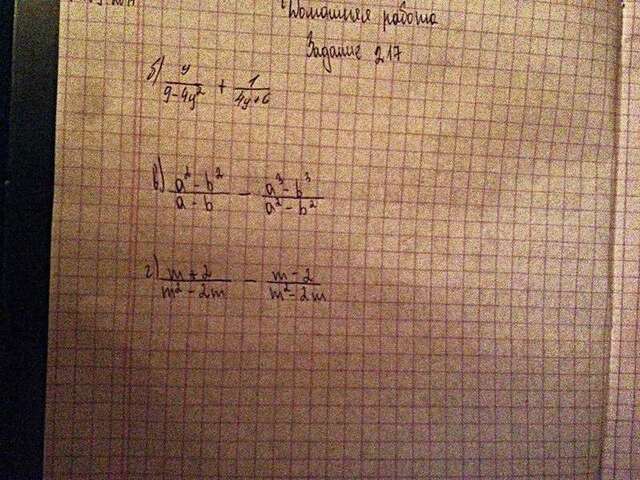 Домашняя работа
Задание 217
б) y/(9-4y²) + 1/(4y+6)
в) (a²-b²)/(a-b) - (a³-b³)/(a²-b²)
г) (m+2)/(m²-2m) - (m-2)/(m²-2m)